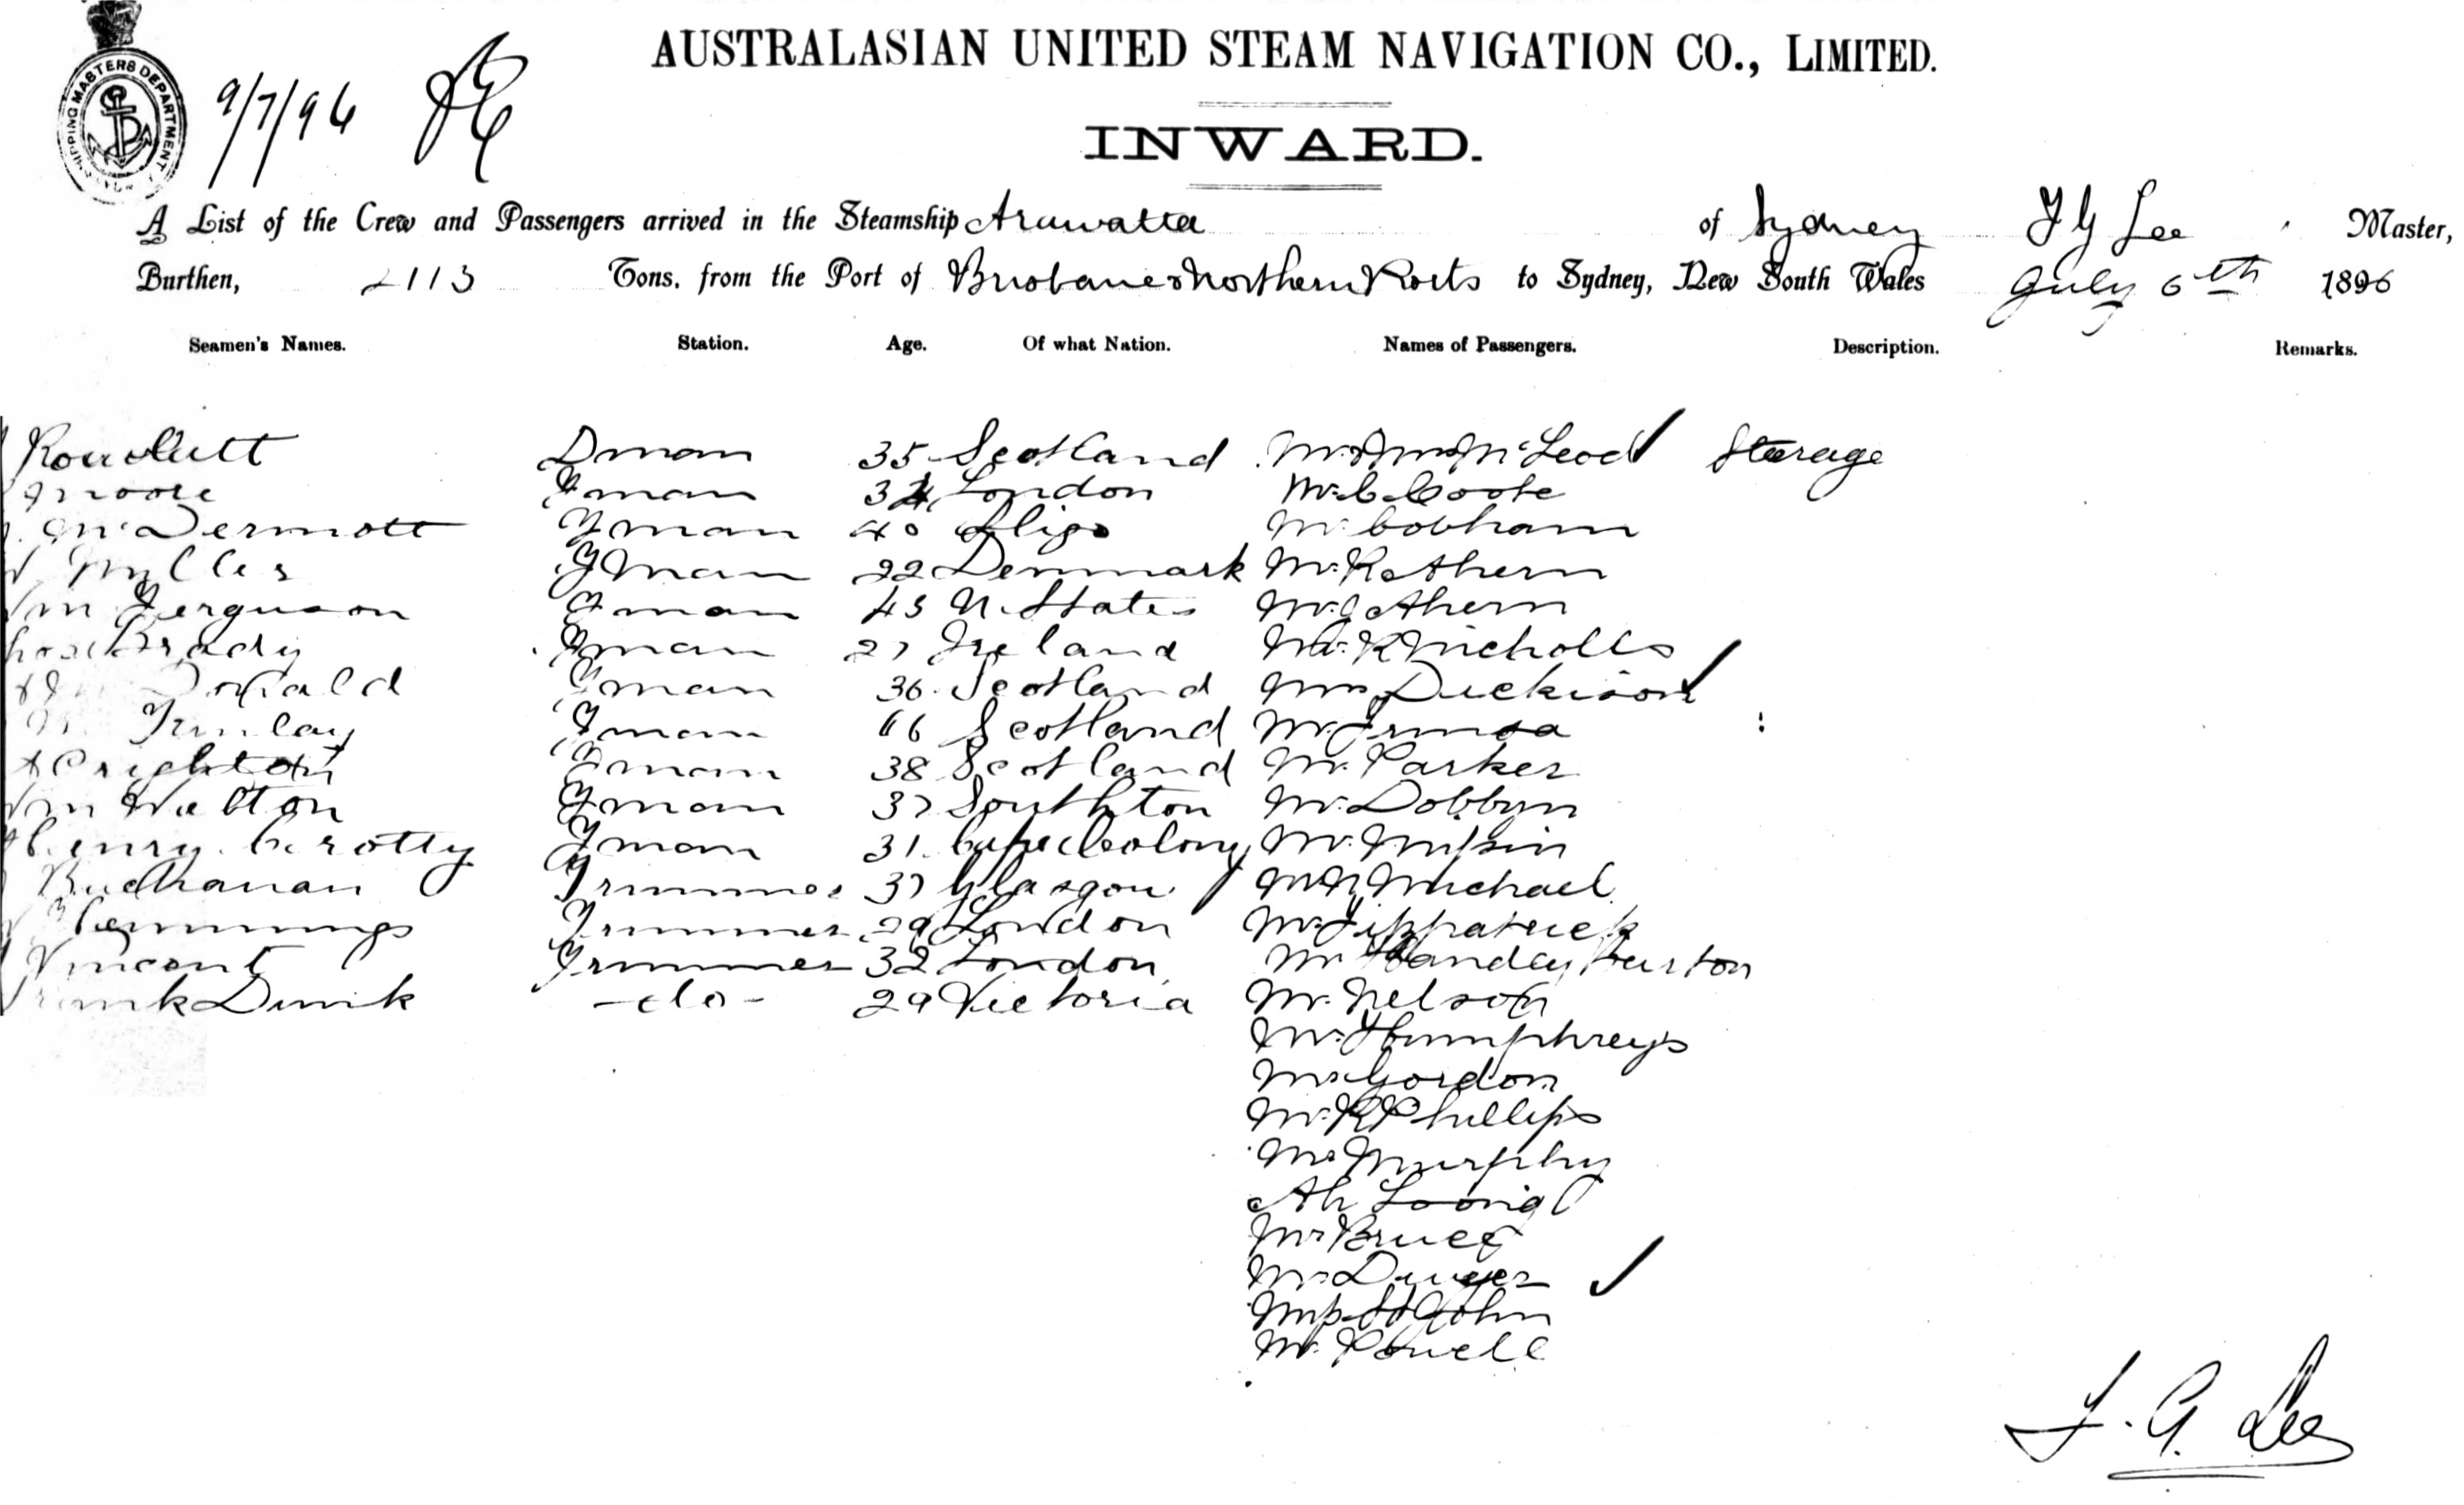 SHIPPING MASTERS DEPARTMENT
9/7/96
AUSTRALASIAN UNITED STEAM NAVIGATION CO., LIMITED.
INWARD.
A List of the Crew and Passengers arrived in the Steamship Arawatta of Sydney Lee Master,
Burthen, 2113 Tons. from the Port of Brisbane & Northern Ports to Sydney, New South Wales July 6th 1896
Seamen's Names. Station. Age. Of what Nation. Names of Passengers. Description. Remarks.
Dman 35 Scotland McLeod Sterage
Moore Fman London Mr C Coote
McDermott Fman 40 Sligo Mr Cobham
Fman 22 Denmark Mr Ahern
Ferguson Fman 43 U. States Mr Ahern
Brady Fman 27 Ireland Nicholls
Donald Fman 36 Scotland Mrs Dickison
Finlay Fman Scotland Mr
A Crighton Fman 38 Scotland Mr Parker
Wm Walton Fman 37 Southton Mr Dobbyn
Henry Crotty Fman 31 Cape Colony Mr
Buchanan Trimmer 37 Glasgow Michael
Jennings Trimmer 29 London Mr Fitzpatrick
Vincent Trimmer 32 London Mr Handley Burton
Frank Dunk -do- 29 Victoria Mr Nelson
Mr Humphreys
Gordon
Mr Phillips
Murphy
Ah Loong
Mr Bruce
Dwyer
St John
Mr Powell
Lee